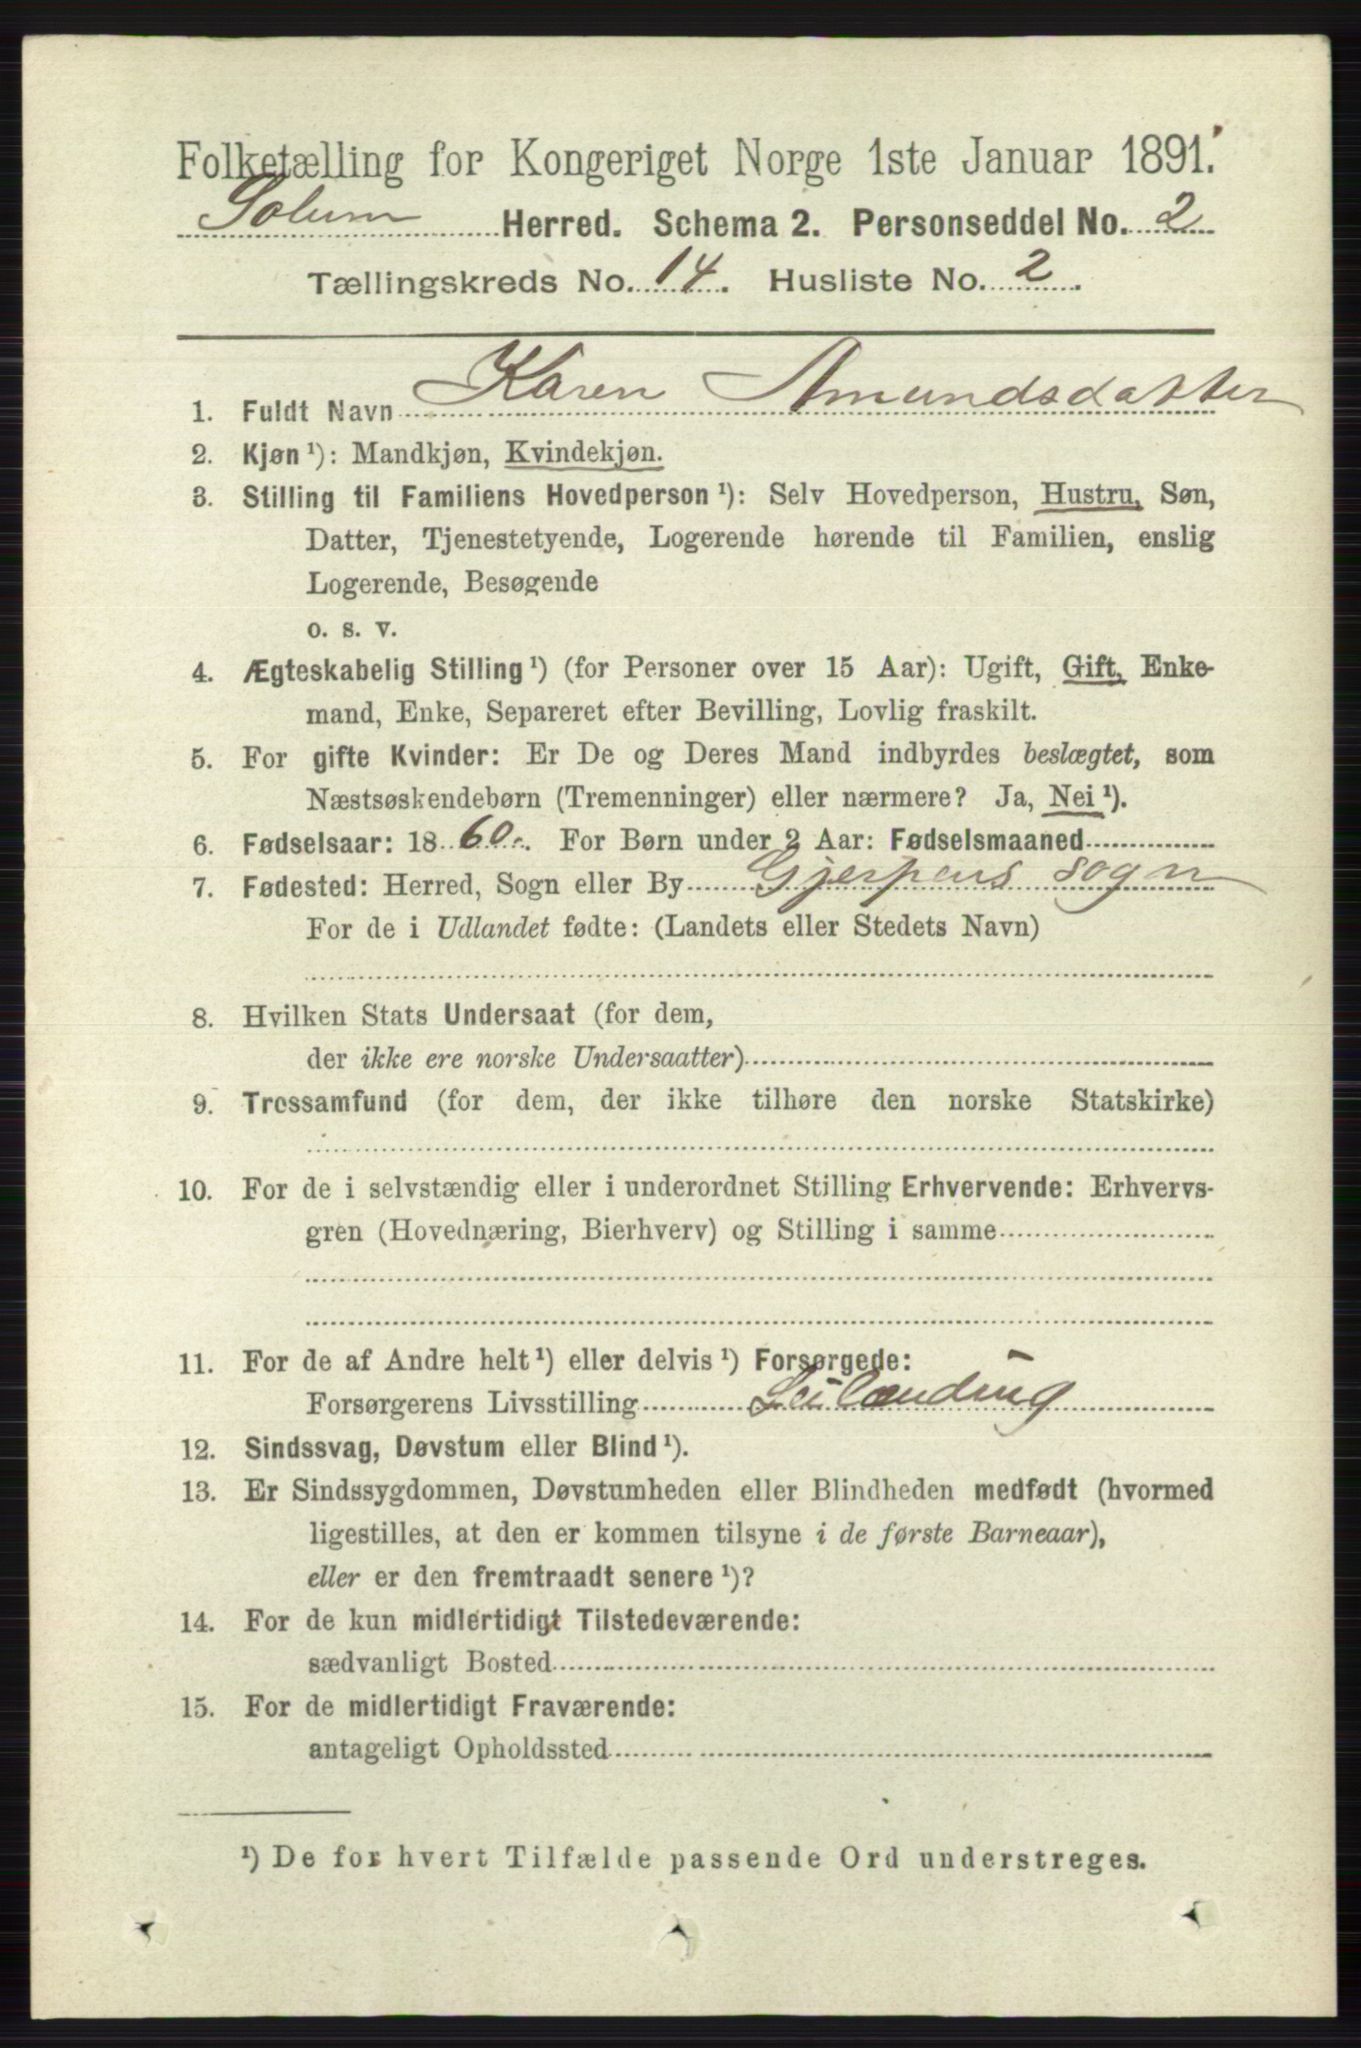 Folketælling for Kongeriget Norge 1ste Januar 1891.
Solum Herred. Schema 2. Personseddel No. 2
Tællingskreds No. 14. Husliste No. 2.
1. Fuldt Navn Karen Amundsdatter
2. Kjøn ¹): Mandkjøn, Kvindekjøn.
3. Stilling til Familiens Hovedperson ¹): Selv Hovedperson, Hustru, Søn,
Datter, Tjenestetyende, Logerende hørende til Familien, enslig
Logerende, Besøgende
o. s. v.
4. Ægteskabelig Stilling ¹) (for Personer over 15 Aar): Ugift, Gift, Enke-
mand, Enke, Separeret efter Bevilling, Lovlig fraskilt.
5. For gifte Kvinder: Er De og Deres Mand indbyrdes beslægtet, som
Næstsøskendebørn (Tremenninger) eller nærmere? Ja, Nei ¹).
6. Fødselsaar: 1860. For Børn under 2 Aar: Fødselsmaaned
7. Fødested: Herred, Sogn eller By Gjerpens sogn
For de i Udlandet fødte: (Landets eller Stedets Navn)
8. Hvilken Stats Undersaat (for dem,
der ikke ere norske Undersaatter)
9. Trossamfund (for dem, der ikke tilhøre den norske Statskirke)
10. For de i selvstændig eller i underordnet Stilling Erhvervende: Erhvervs-
gren (Hovednæring, Bierhverv) og Stilling i samme
11. For de af Andre helt ¹) eller delvis ¹) Forsørgede:
Forsørgerens Livsstilling Leilænding
12. Sindssvag, Døvstum eller Blind ¹).
13. Er Sindssygdommen, Døvstumheden eller Blindheden medfødt (hvormed
ligestilles, at den er kommen tilsyne i de første Barneaar),
eller er den fremtraadt senere ¹)?
14. For de kun midlertidigt Tilstedeværende:
sædvanligt Bosted
15. For de midlertidigt Fraværende:
antageligt Opholdssted
¹) De for hvert Tilfælde passende Ord understreges.